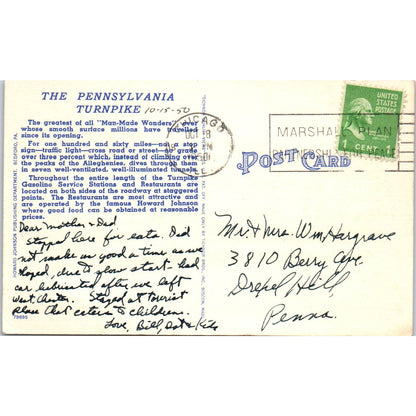 THE PENNSYLVANIA
TURNPIKE 10-15-50
The greatest of all "Man-Made Wonders" over
whose smooth surface millions have travelled
since its opening.
For one hundred and sixty miles—no stop
sign—traffic light—cross road or street—no grade
over three percent which, instead of climbing over
the peaks of the Alleghenies, dives through them
in seven well-ventilated, well-illuminated tunnels.
Throughout the entire length of the Turnpike
Gasoline Service Stations and Restaurants are
located on both sides of the roadway at staggered
points. The Restaurants are most attractive and
are operated by the famous Howard Johnson
where good food can be obtained at reasonable
prices.
Dear mother & Dad
Stopped here for eats. Did
not make as good a time as we
hoped, due to slow start. had
car lubricated after we left
West Chester. Stayed at tourist
place that caters to children.
Love, Bill, Dot & Kids
79695
HOWARD JOHNSON PUBLISHING DEPARTMENT, BEDFORD, PA.
CHICAGO
OCT 18
ILL.
MARSHALL PLAN
UNITED STATES
POSTAGE
1 CENT 1
POST CARD
Mr & Mrs. Wm. Hargrave
3810 Berry Ave.
Drexel Hill,
Penna.